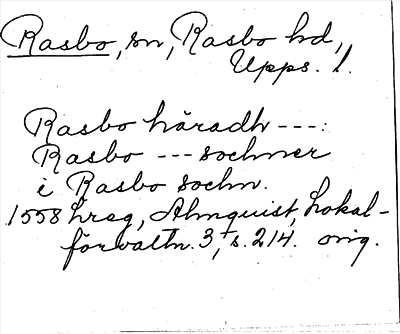 Rasbo, sn, Rasbo hd,
Upps. l.
Rasbo häradh ---:
Rasbo --- sochner
i Rasbo sochn.
1558 hreg, Almquist, Lokal-
förvaltn. 3, s. 214. orig.